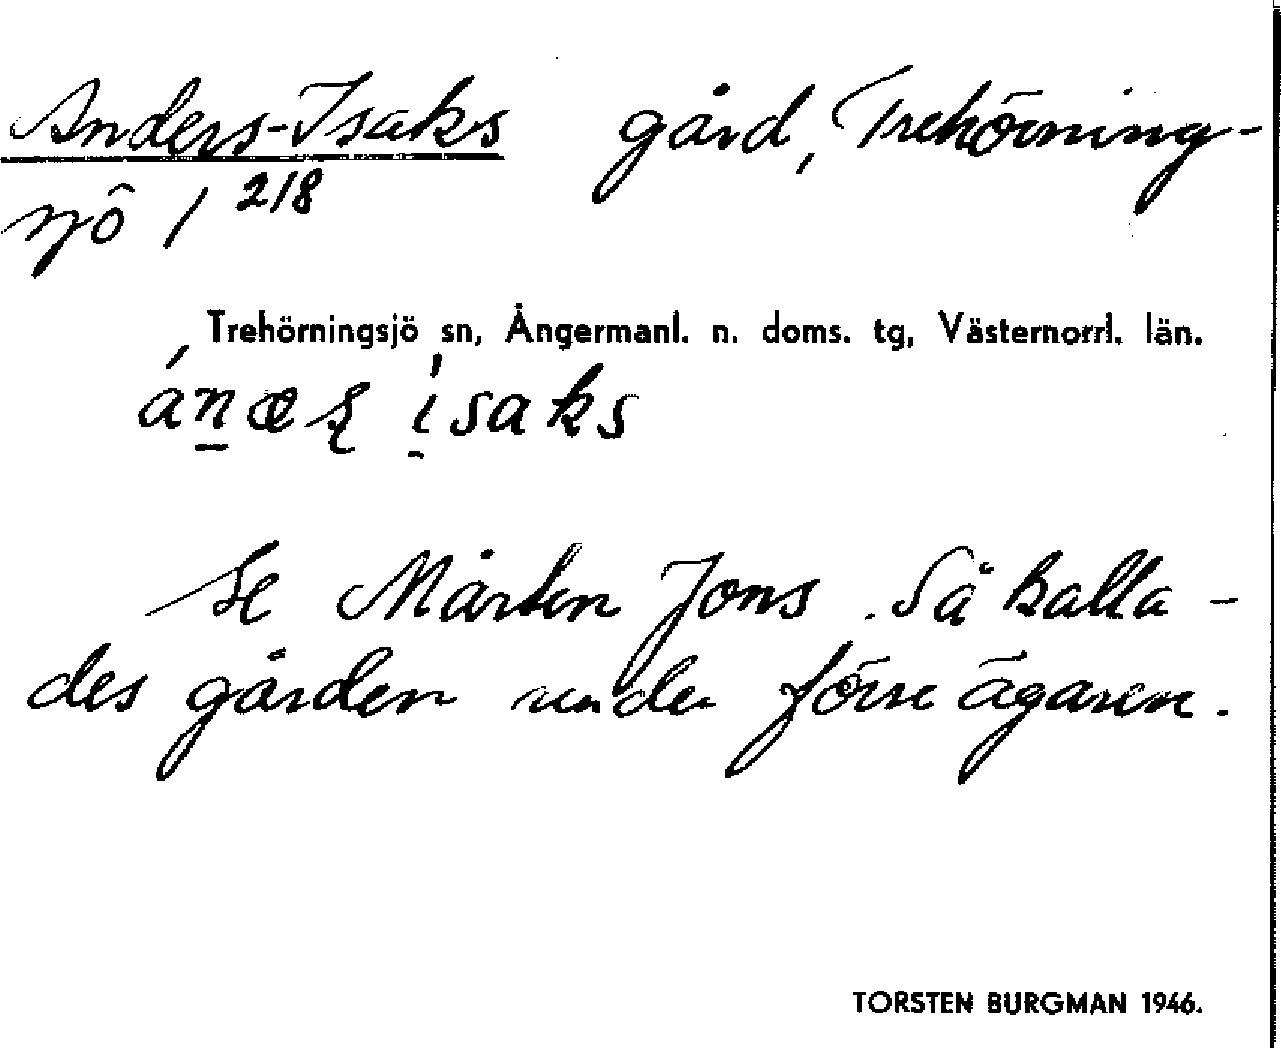 Anders-Isaks gård, Trehörning-
sjö 1 2/8
Trehörningsjö sn, Ångermanl. n. doms. tg, Västernorrl. län.
isaks
Se Mårten Jons. Så kalla-
des gården under förre ägaren.
TORSTEN BURGMAN 1946.